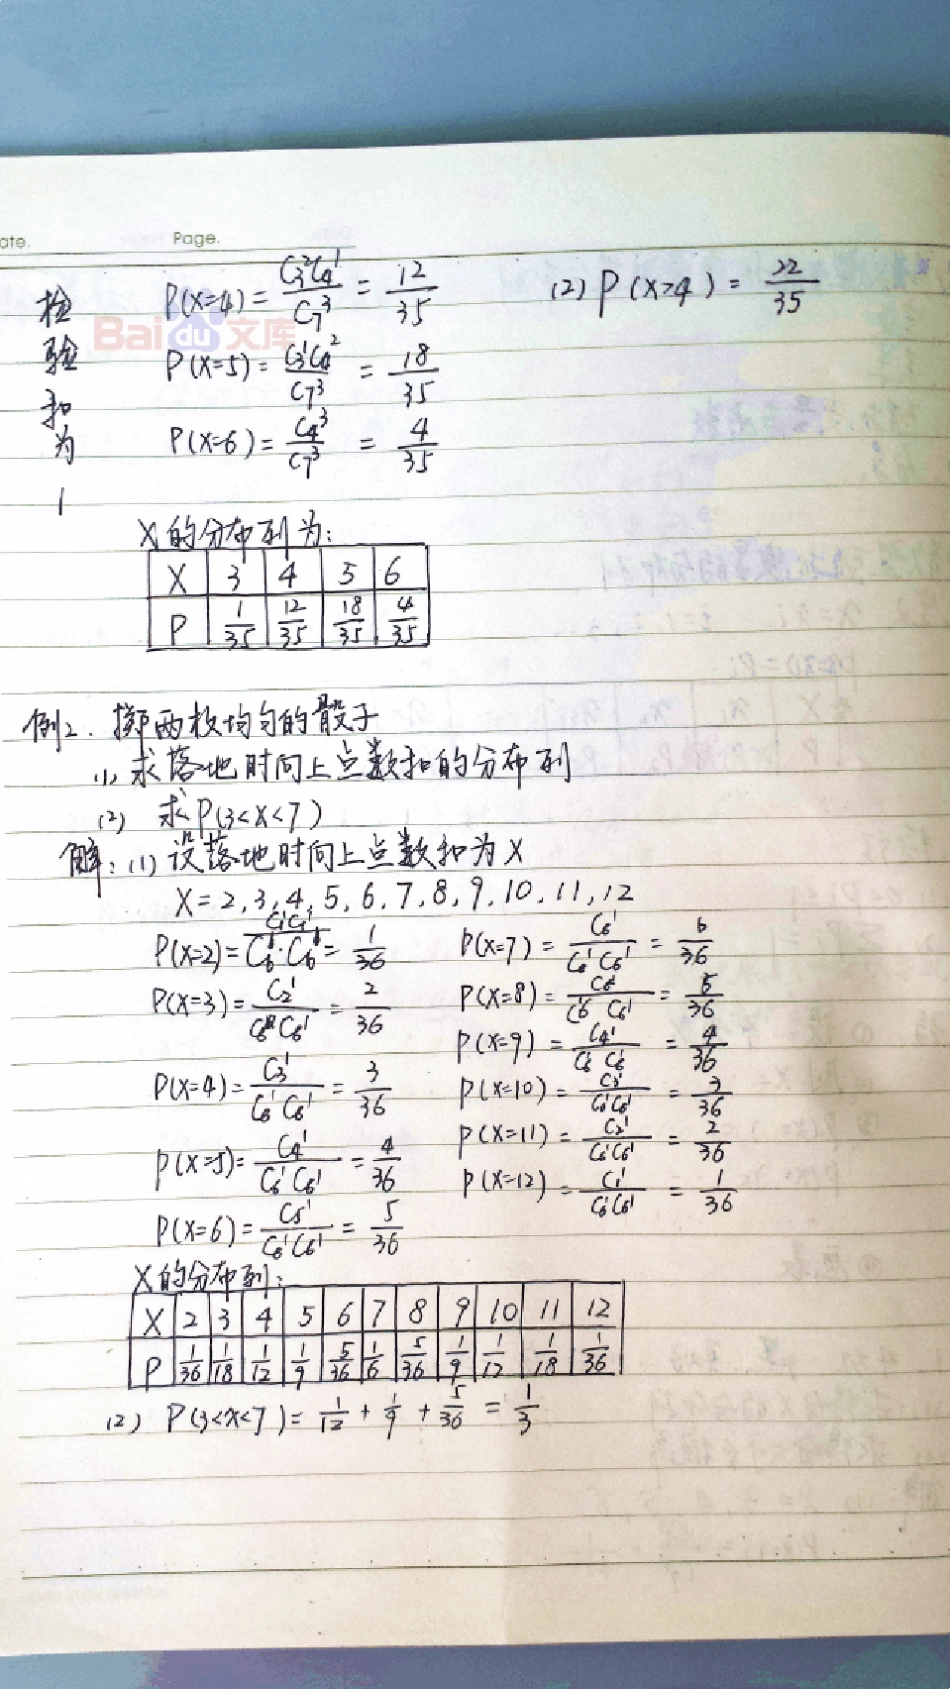 ate. Page.
检验和为1
P(X=4) = C₃²C₄¹/C₇³ = 12/35
(2) P(X>4) = 22/35
Bai du 文库
P(X=5) = C₃¹C₄²/C₇³ = 18/35
P(X=6) = C₄³/C₇³ = 4/35
X的分布列为:
X 3 4 5 6
P 1/35 12/35 18/35 4/35
例2. 掷两枚均匀的骰子
(1) 求落地时向上点数和的分布列
(2) 求P(3<X<7)
解: (1) 设落地时向上点数和为X
X=2,3,4,5,6,7,8,9,10,11,12
P(X=2) = C₁¹C₁¹/C₆¹·C₆¹ = 1/36
P(X=3) = C₂¹/C₆¹C₆¹ = 2/36
P(X=4) = C₃¹/C₆¹C₆¹ = 3/36
P(X=5) = C₄¹/C₆¹C₆¹ = 4/36
P(X=6) = C₅¹/C₆¹C₆¹ = 5/36
P(X=7) = C₆¹/C₆¹C₆¹ = 6/36
P(X=8) = C₅¹/C₆¹C₆¹ = 5/36
P(X=9) = C₄¹/C₆¹C₆¹ = 4/36
P(X=10) = C₃¹/C₆¹C₆¹ = 3/36
P(X=11) = C₂¹/C₆¹C₆¹ = 2/36
P(X=12) = C₁¹/C₆¹C₆¹ = 1/36
X的分布列:
X 2 3 4 5 6 7 8 9 10 11 12
P 1/36 1/18 1/12 1/9 5/36 1/6 5/36 1/9 1/12 1/18 1/36
(2) P(3<X<7) = 1/12 + 1/9 + 5/36 = 1/3